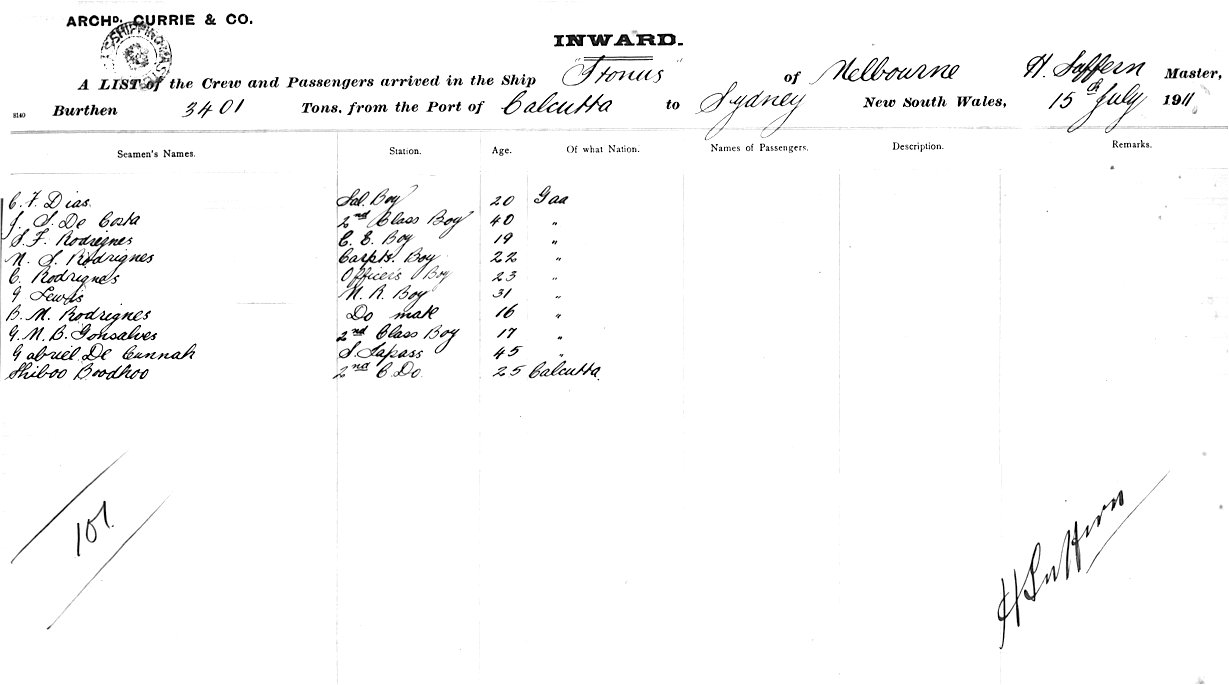 ARCHD. CURRIE & CO.
INWARD.
A LIST of the Crew and Passengers arrived in the Ship "Fronus" of Melbourne H. Saffern Master,
8140 Burthen 3401 Tons. from the Port of Calcutta to Sydney New South Wales, 15th July 1911
Seamen's Names. Station. Age. Of what Nation. Names of Passengers. Description. Remarks.
C. F. Dias. Sal. Boy 20 Goa
J. S. De Costa 2nd Class Boy 40 "
S. F. Rodrignes C. E. Boy 19 "
N. S. Rodrignes Capts. Boy 22 "
C. Rodrignes Officers Boy 23 "
G Lewis M. R. Boy 31 "
B. M. Rodrignes Do mate 16 "
G. M. B. Gonsalves 2nd Class Boy 17 "
Gabriel De Cunnah S. Tapass 45 "
Shiboo Boodhoo 2nd C. Do. 25 Calcutta.
101.